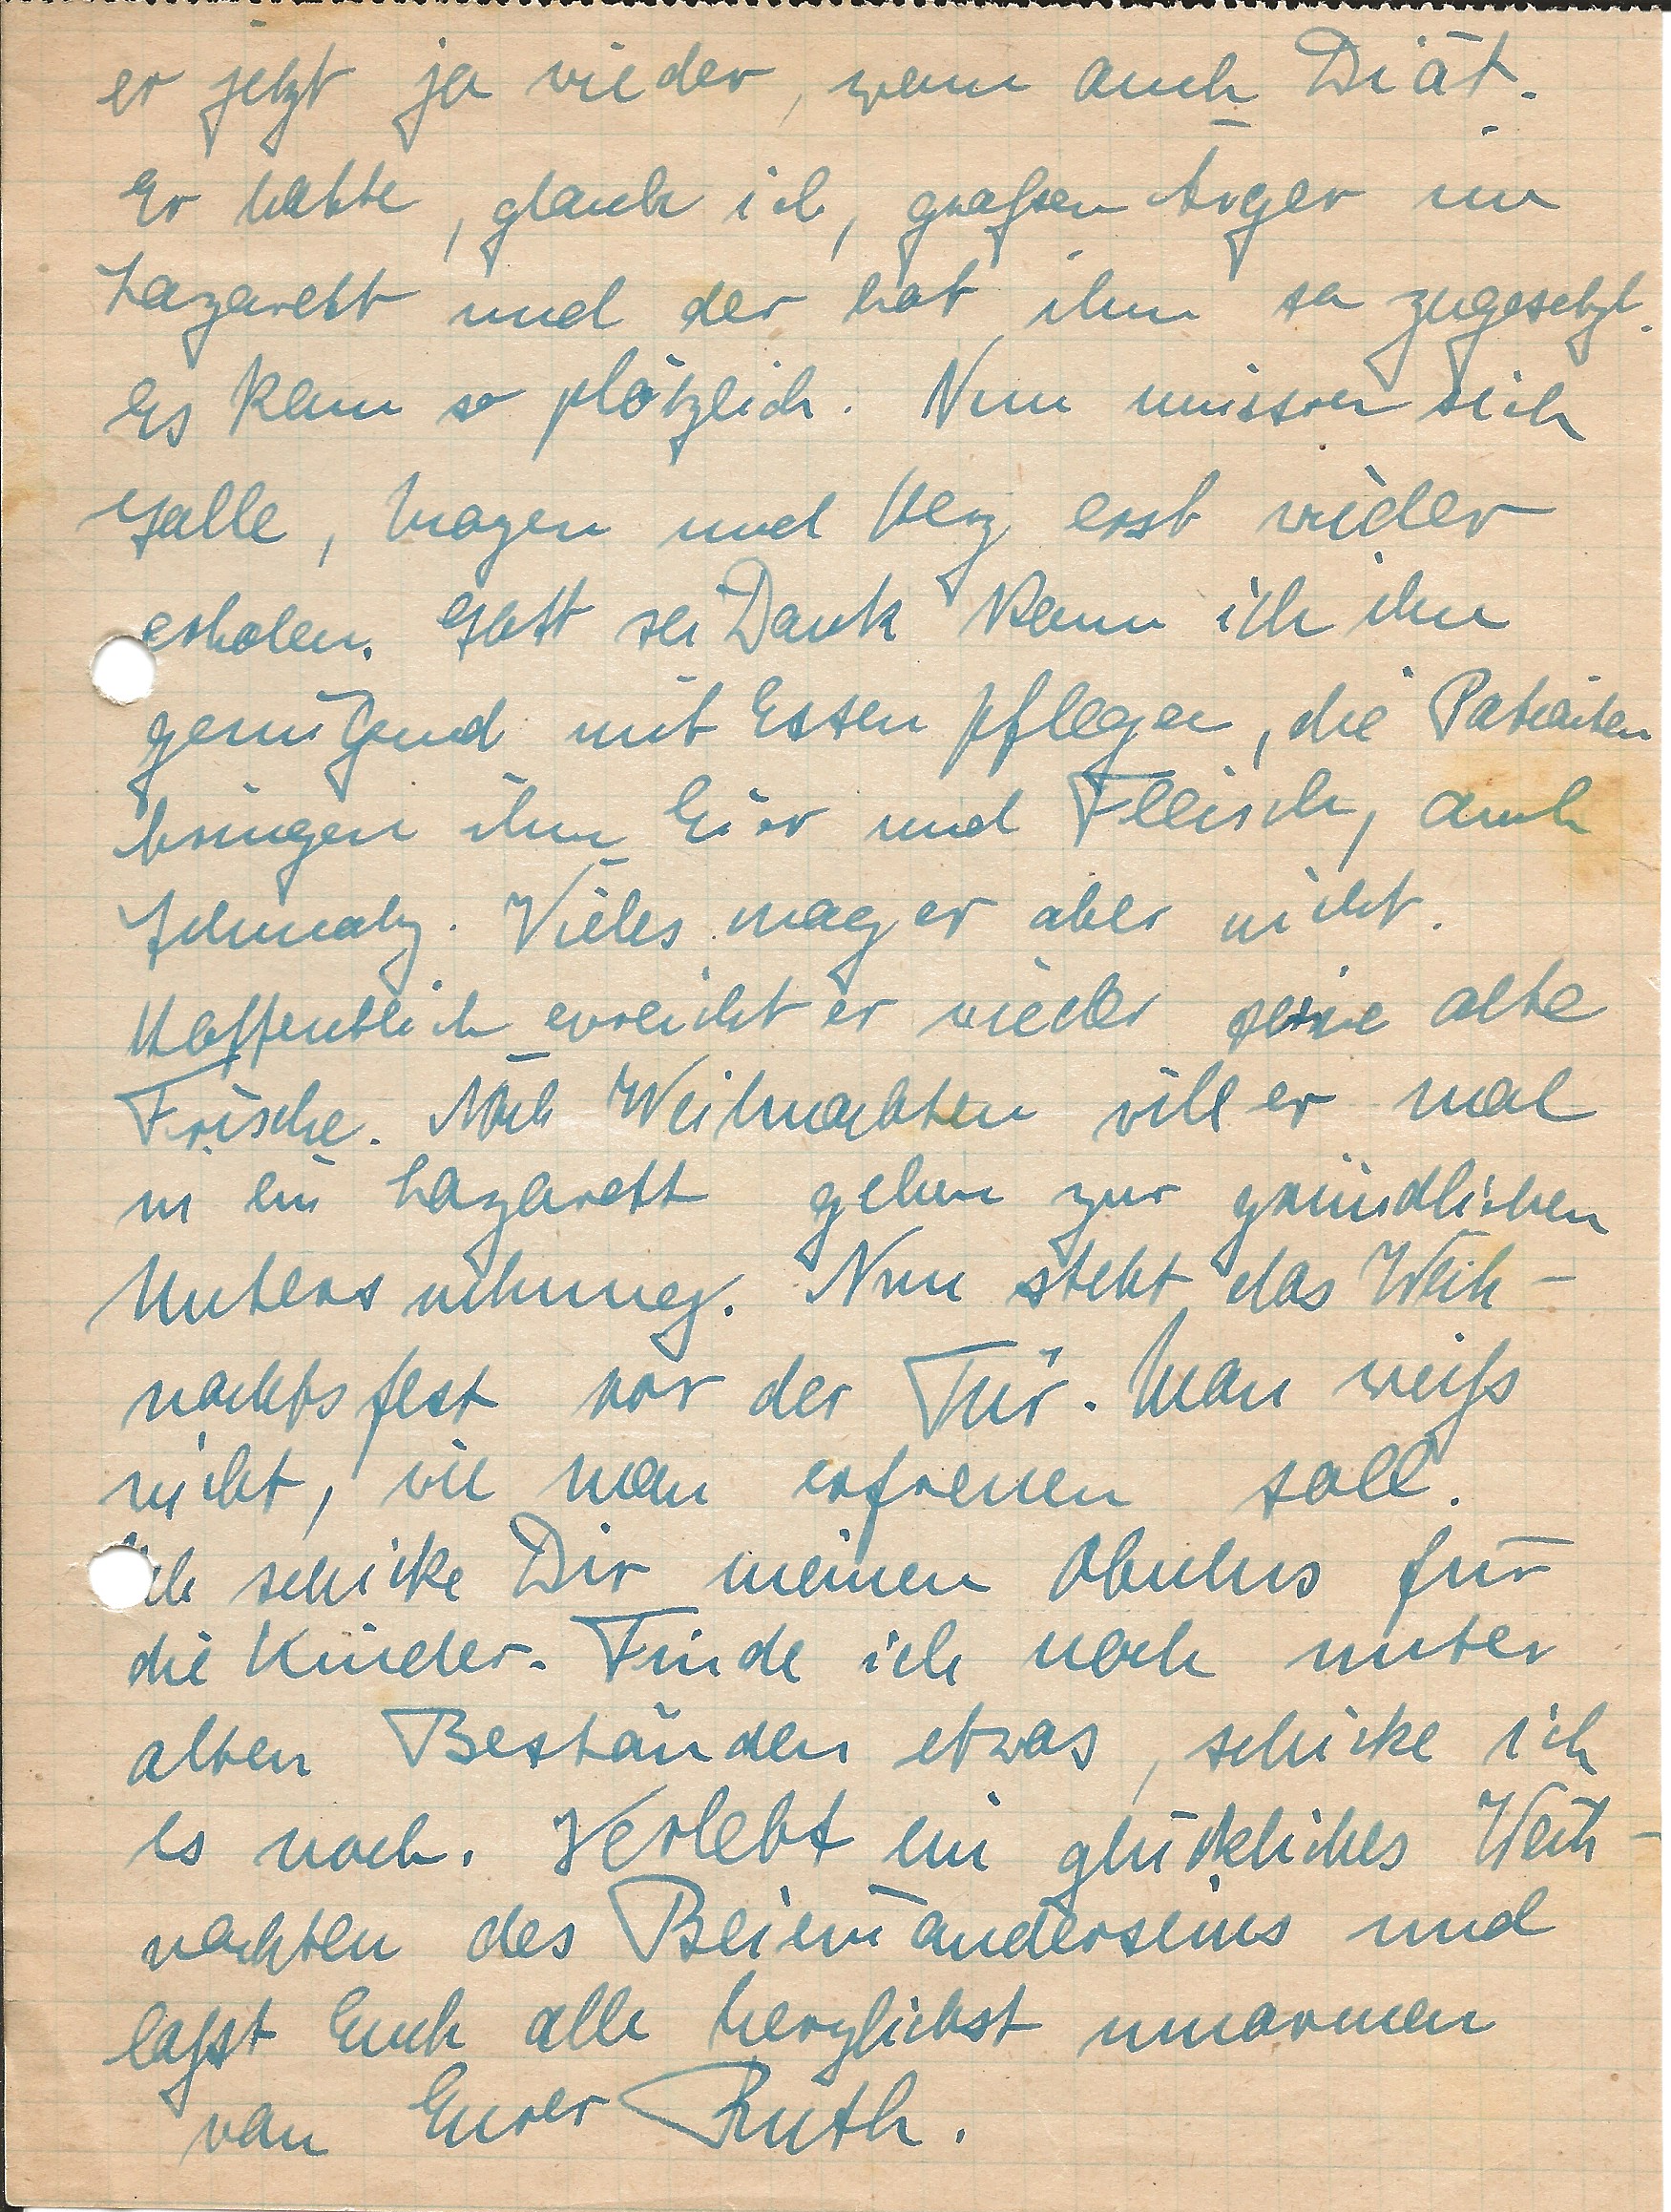 er jetzt ja wieder, wenn auch Diät.
Er hatte, glaub ich, großen Ärger im
Lazarett und der hat ihm so zugesetzt.
Es kam so plötzlich. Nun müssen sich
Galle, Magen und Herz erst wieder
erholen. Gott sei Dank kann ich ihn
genügend mit Essen pflegen, die Patienten
bringen ihm Eier und Fleisch, auch
Schmalz. Vieles mag er aber nicht.
Hoffentlich erreicht er wieder seine alte
Frische. Nach Weihnachten will er mal
in ein Lazarett gehen zur gründlichen
Untersuchung. Nun steht das Weih-
nachtsfest vor der Tür. Man weiß
nicht, wie man erfreuen soll.
Ich schicke Dir meinen Obulus für
die Kinder. Finde ich noch unter
alten Beständen etwas, schicke ich
es noch. Verlebt ein glückliches Weih-
nachten des Beieinanderseins und
laßt Euch alle herzlichst umarmen
von Eurer Ruth.